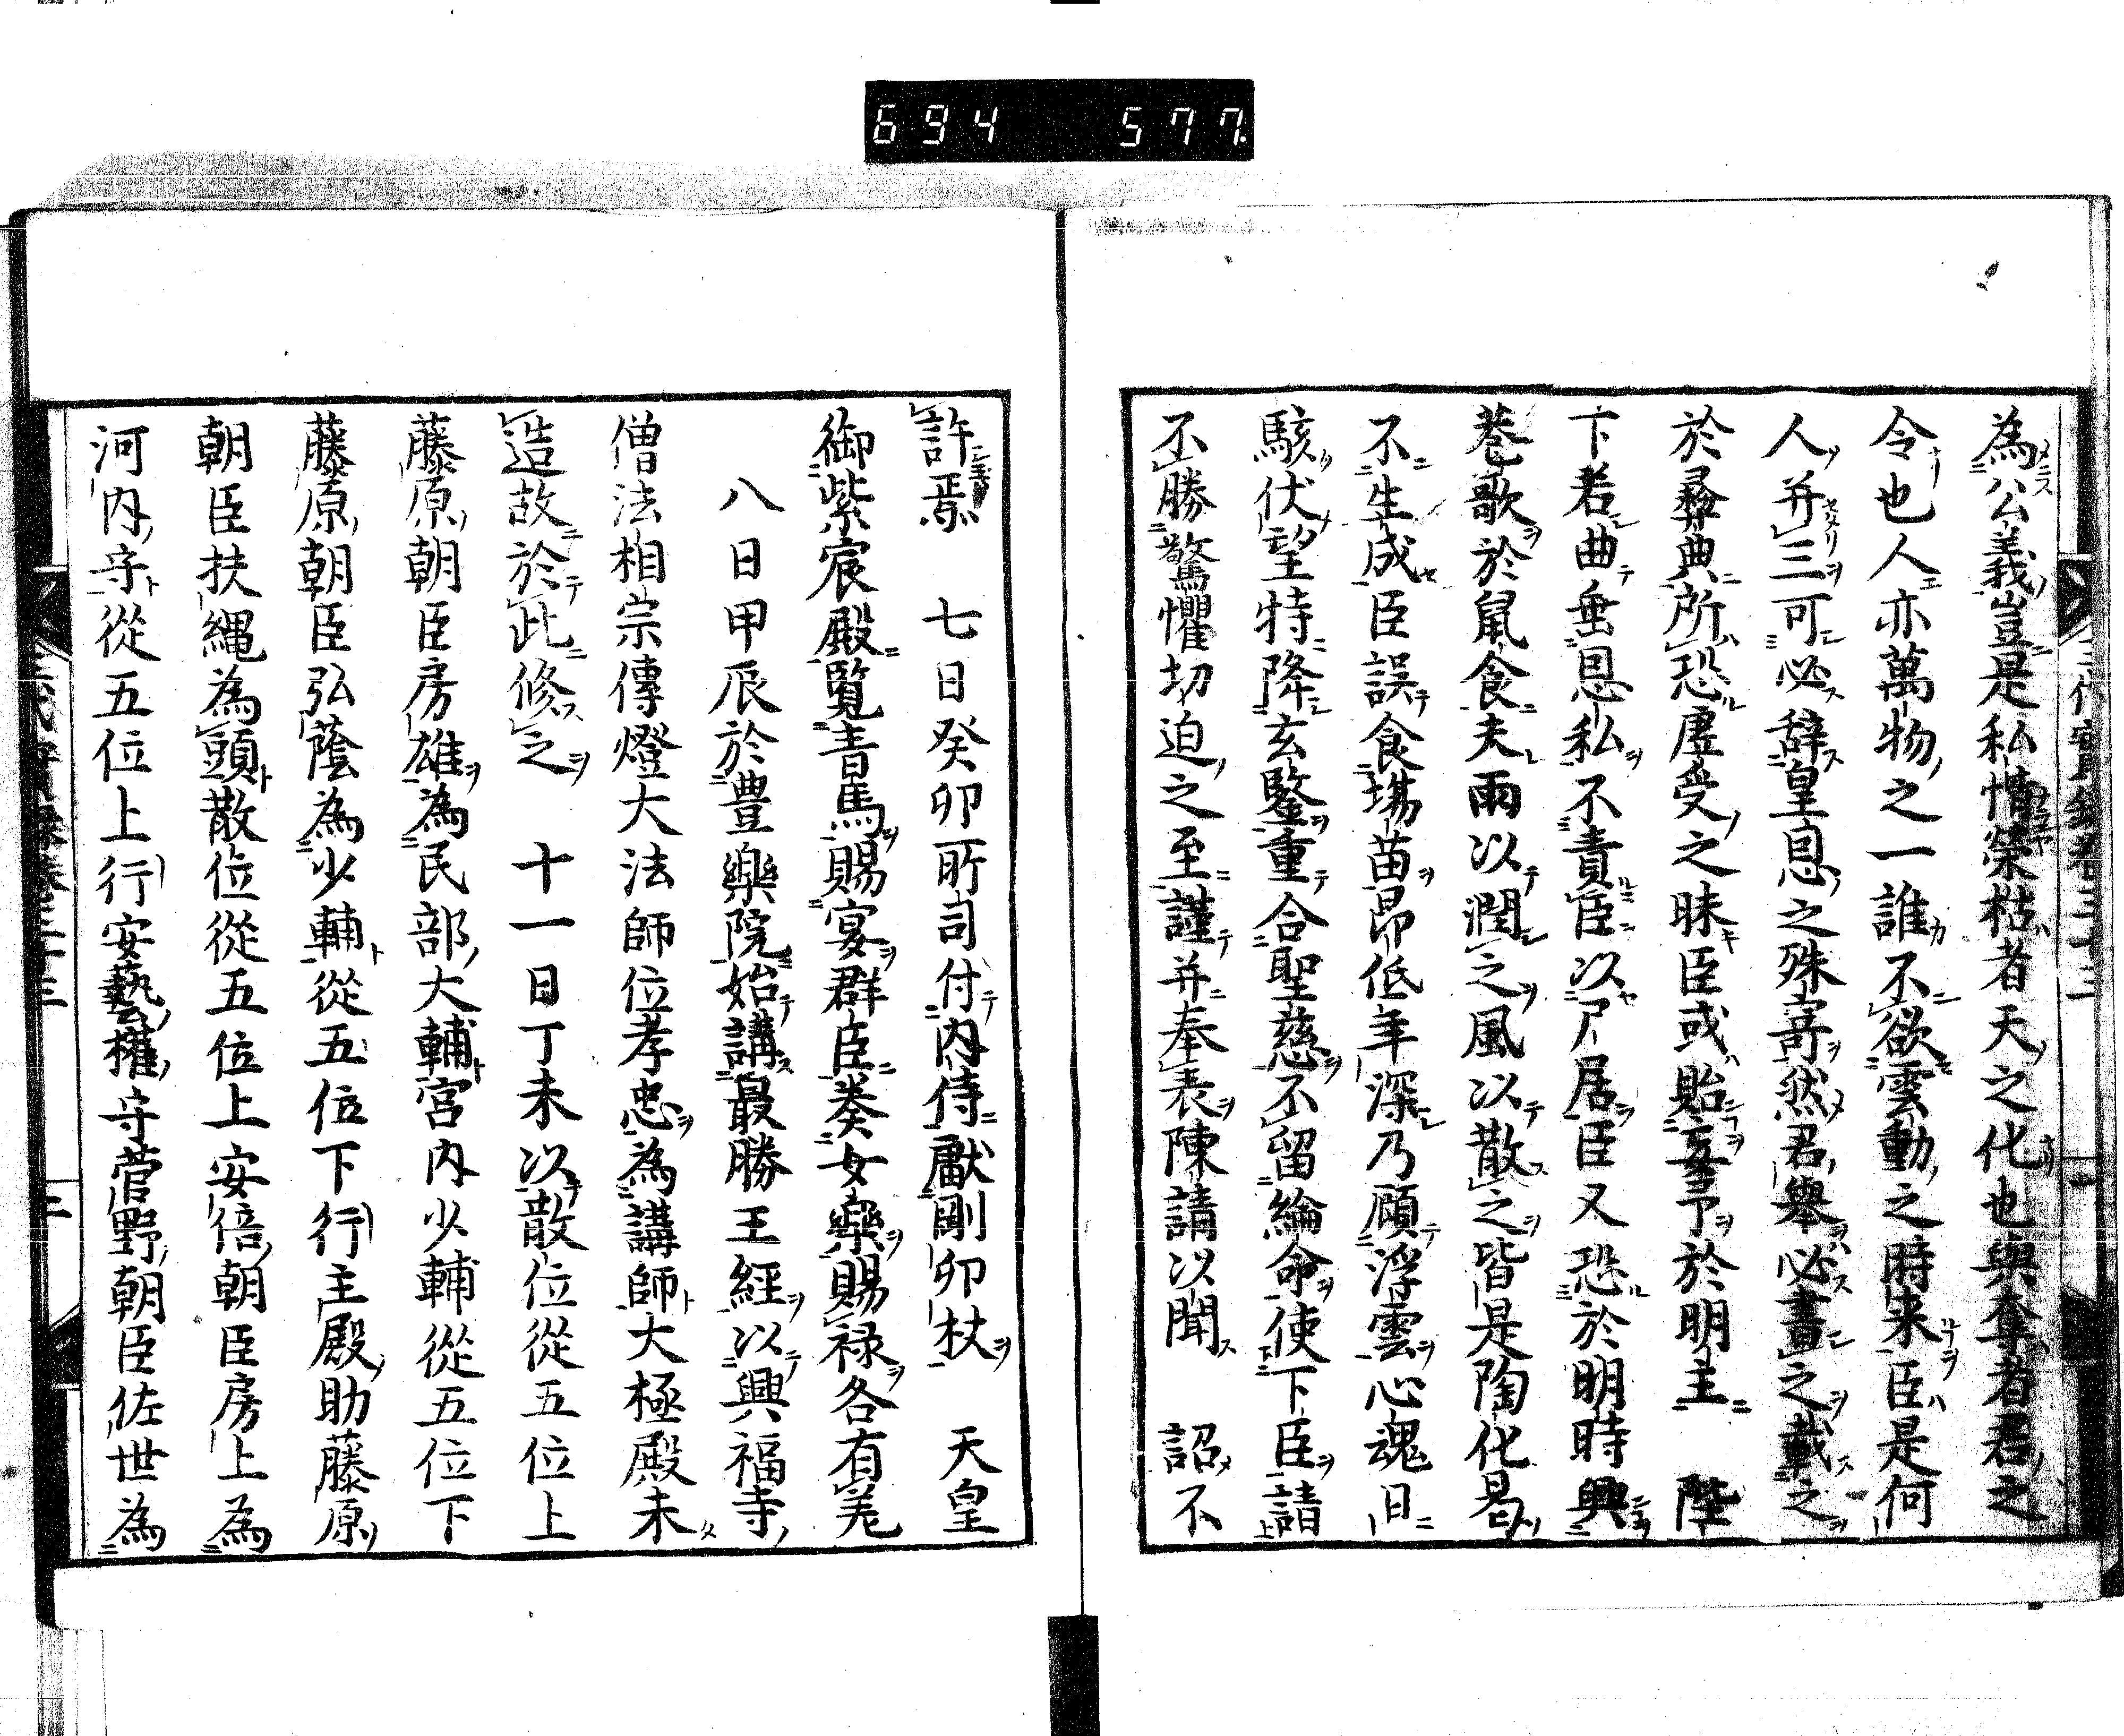 694 577
為公義豈是私情榮枯者天之化也與奪者君之
令也人亦萬物之一誰不欲雲動之時来臣是何
人并三可必辞皇恩之殊寄然君舉必書之載之
於彛典所恐虚受之昧臣或貽辜予於明主 陛
下若曲垂恩私不責臣以尸居臣又恐於明時興
巷歌於鼠食夫雨以潤之風以散之皆是陶化曷
不生成臣誤食塲苗昂低年深乃顧浮雲心魂日
駭伏望特降玄鑒重合聖慈丕留綸命使下臣請
丕勝驚懼切迫之至謹并奉表陳請以聞 詔不
許焉 七日癸卯所司付内侍獻剛卯杖 天皇
御紫宸殿覧青馬賜宴群臣奏女樂賜禄各有差
八日甲辰於豊樂院始講最勝王經以興福寺
僧法相宗傳燈大法師位孝忠為講師大極殿未
造故於此修之 十一日丁未以散位從五位上
藤原朝臣房雄為民部大輔宮内少輔從五位下
藤原朝臣弘蔭為少輔從五位下行主殿助藤原
朝臣扶縄為頭散位從五位上安倍朝臣房上為
河内守從五位上行安藝權守菅野朝臣佐世為